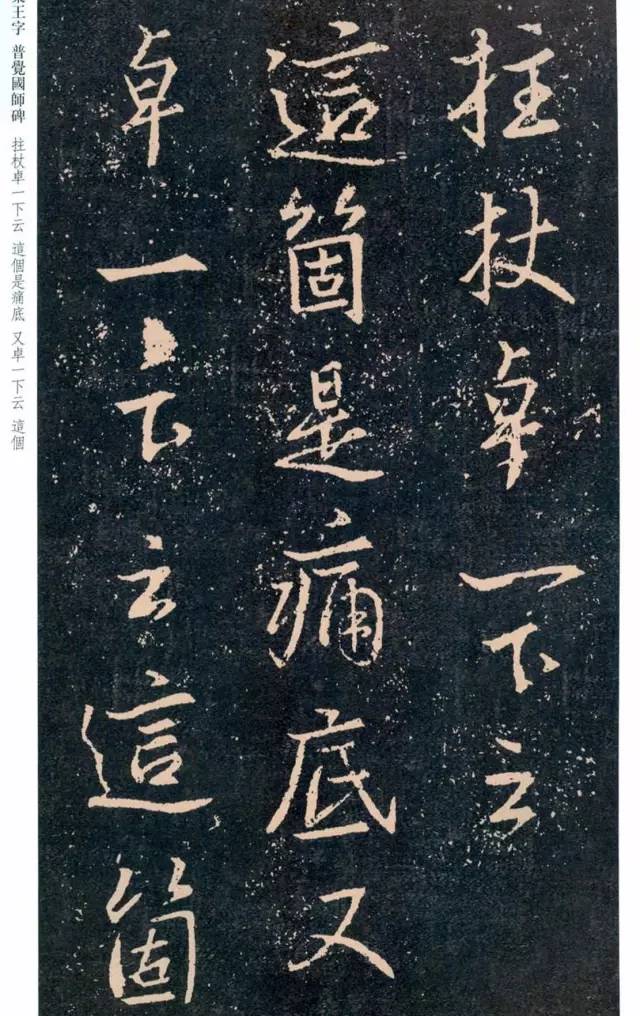 拄杖卓一下云
這箇是痛底又
卓一下云這箇
王字 普覺國師碑 拄杖卓一下云 這個是痛底 又卓一下云 這個